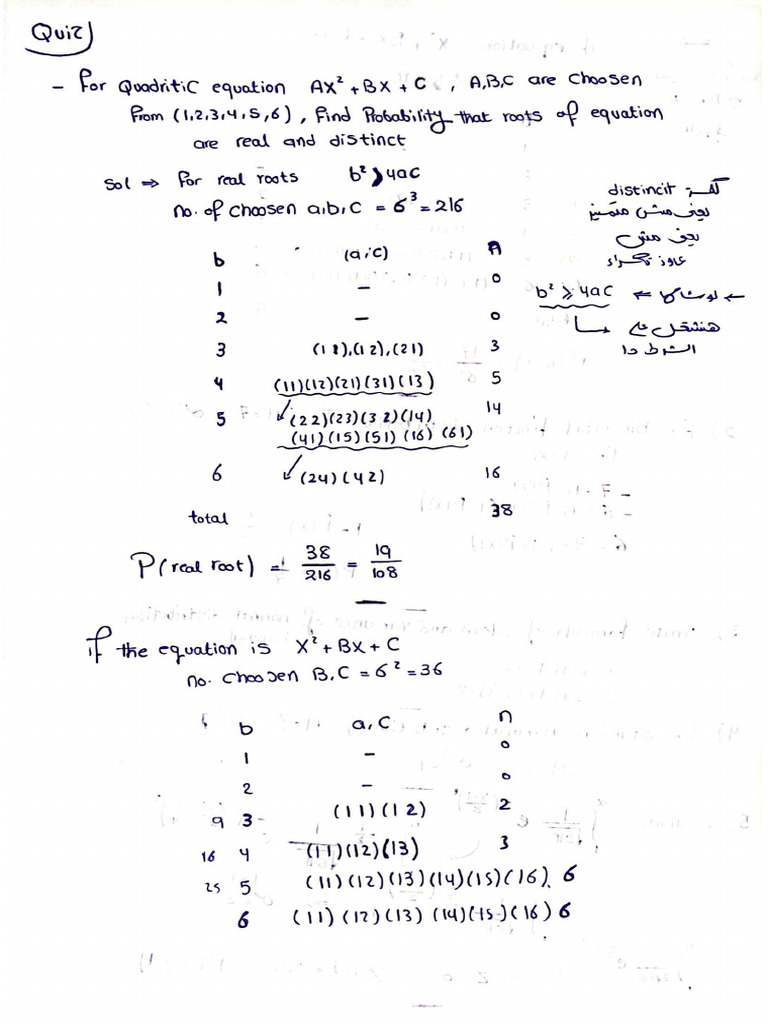 Quiz
- For Quadritic equation AX² + BX + C , A,B,C are choosen
From (1,2,3,4,5,6) , Find Probability that roots of equation
are real and distinct
Sol ⇒ For real roots b² > 4ac
no. of choosen a,b,c = 6³ = 216
distincit كلمة
يعنى مش متميز
يعنى مش
عاوز تكرار
b² ⩾ 4ac
هنشتغل على
الشرط دا
b (a,c) n
1 — 0
2 — 0
3 (11),(12),(21) 3
4 (11)(12)(21)(31)(13) 5
5 (22)(23)(32)(14) 14
(41)(15)(51)(16)(61)
6 (24)(42) 16
total 38
P(real root) = 38/216 = 19/108
if the equation is X² + BX + C
no. choosen B,C = 6² = 36
b a,c n
1 — 0
2 — 0
9 3 (11)(12) 2
16 4 (11)(12)(13) 3
25 5 (11)(12)(13)(14)(15)(16) 6
6 (11)(12)(13)(14)(15)(16) 6